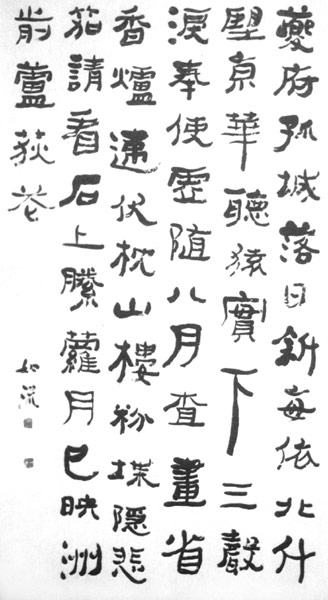 夔府孤城落日斜每依北斗
望京華聽猿實下三聲
淚奉使虛隨八月查畫省
香爐違伏枕山樓粉堞隱悲
笳請看石上藤蘿月已映洲
前蘆荻花